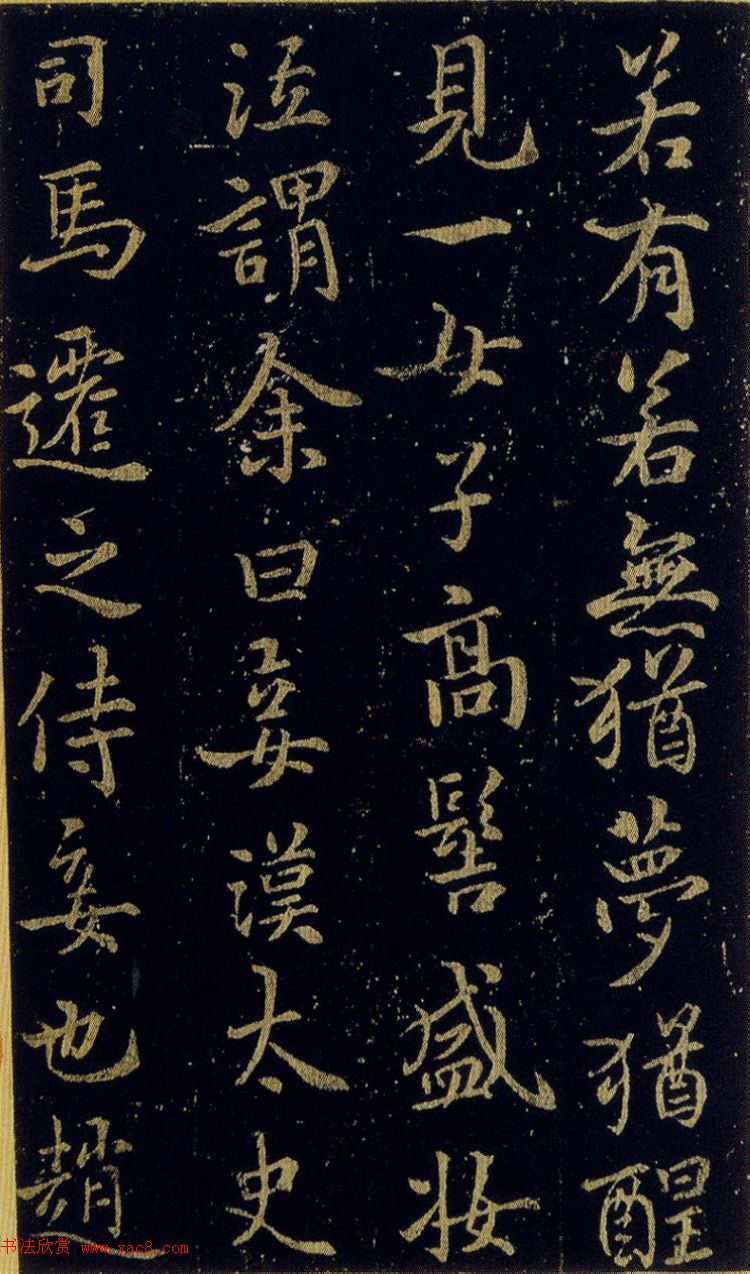 若有若無猶夢猶醒
見一女子高髻盛妝
泣謂余曰妾漢太史
司馬遷之侍妾也趙
书法欣赏 www.yac8.com